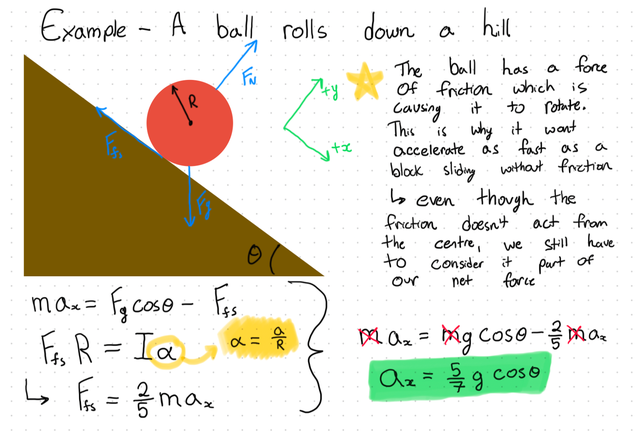 Example – A ball rolls down a hill
F_N
R
+y
+x
F_fs
F_g
θ
The ball has a force
of friction which is
causing it to rotate.
This is why it wont
accelerate as fast as a
block sliding without friction
↳ even though the
friction doesn't act from
the centre, we still have
to consider it part of
our net force
ma_x = F_g cosθ – F_fs
F_fs R = Iα → α = a/R
↳ F_fs = 2/5 ma_x
m a_x = mg cosθ – 2/5 m a_x
a_x = 5/7 g cosθ